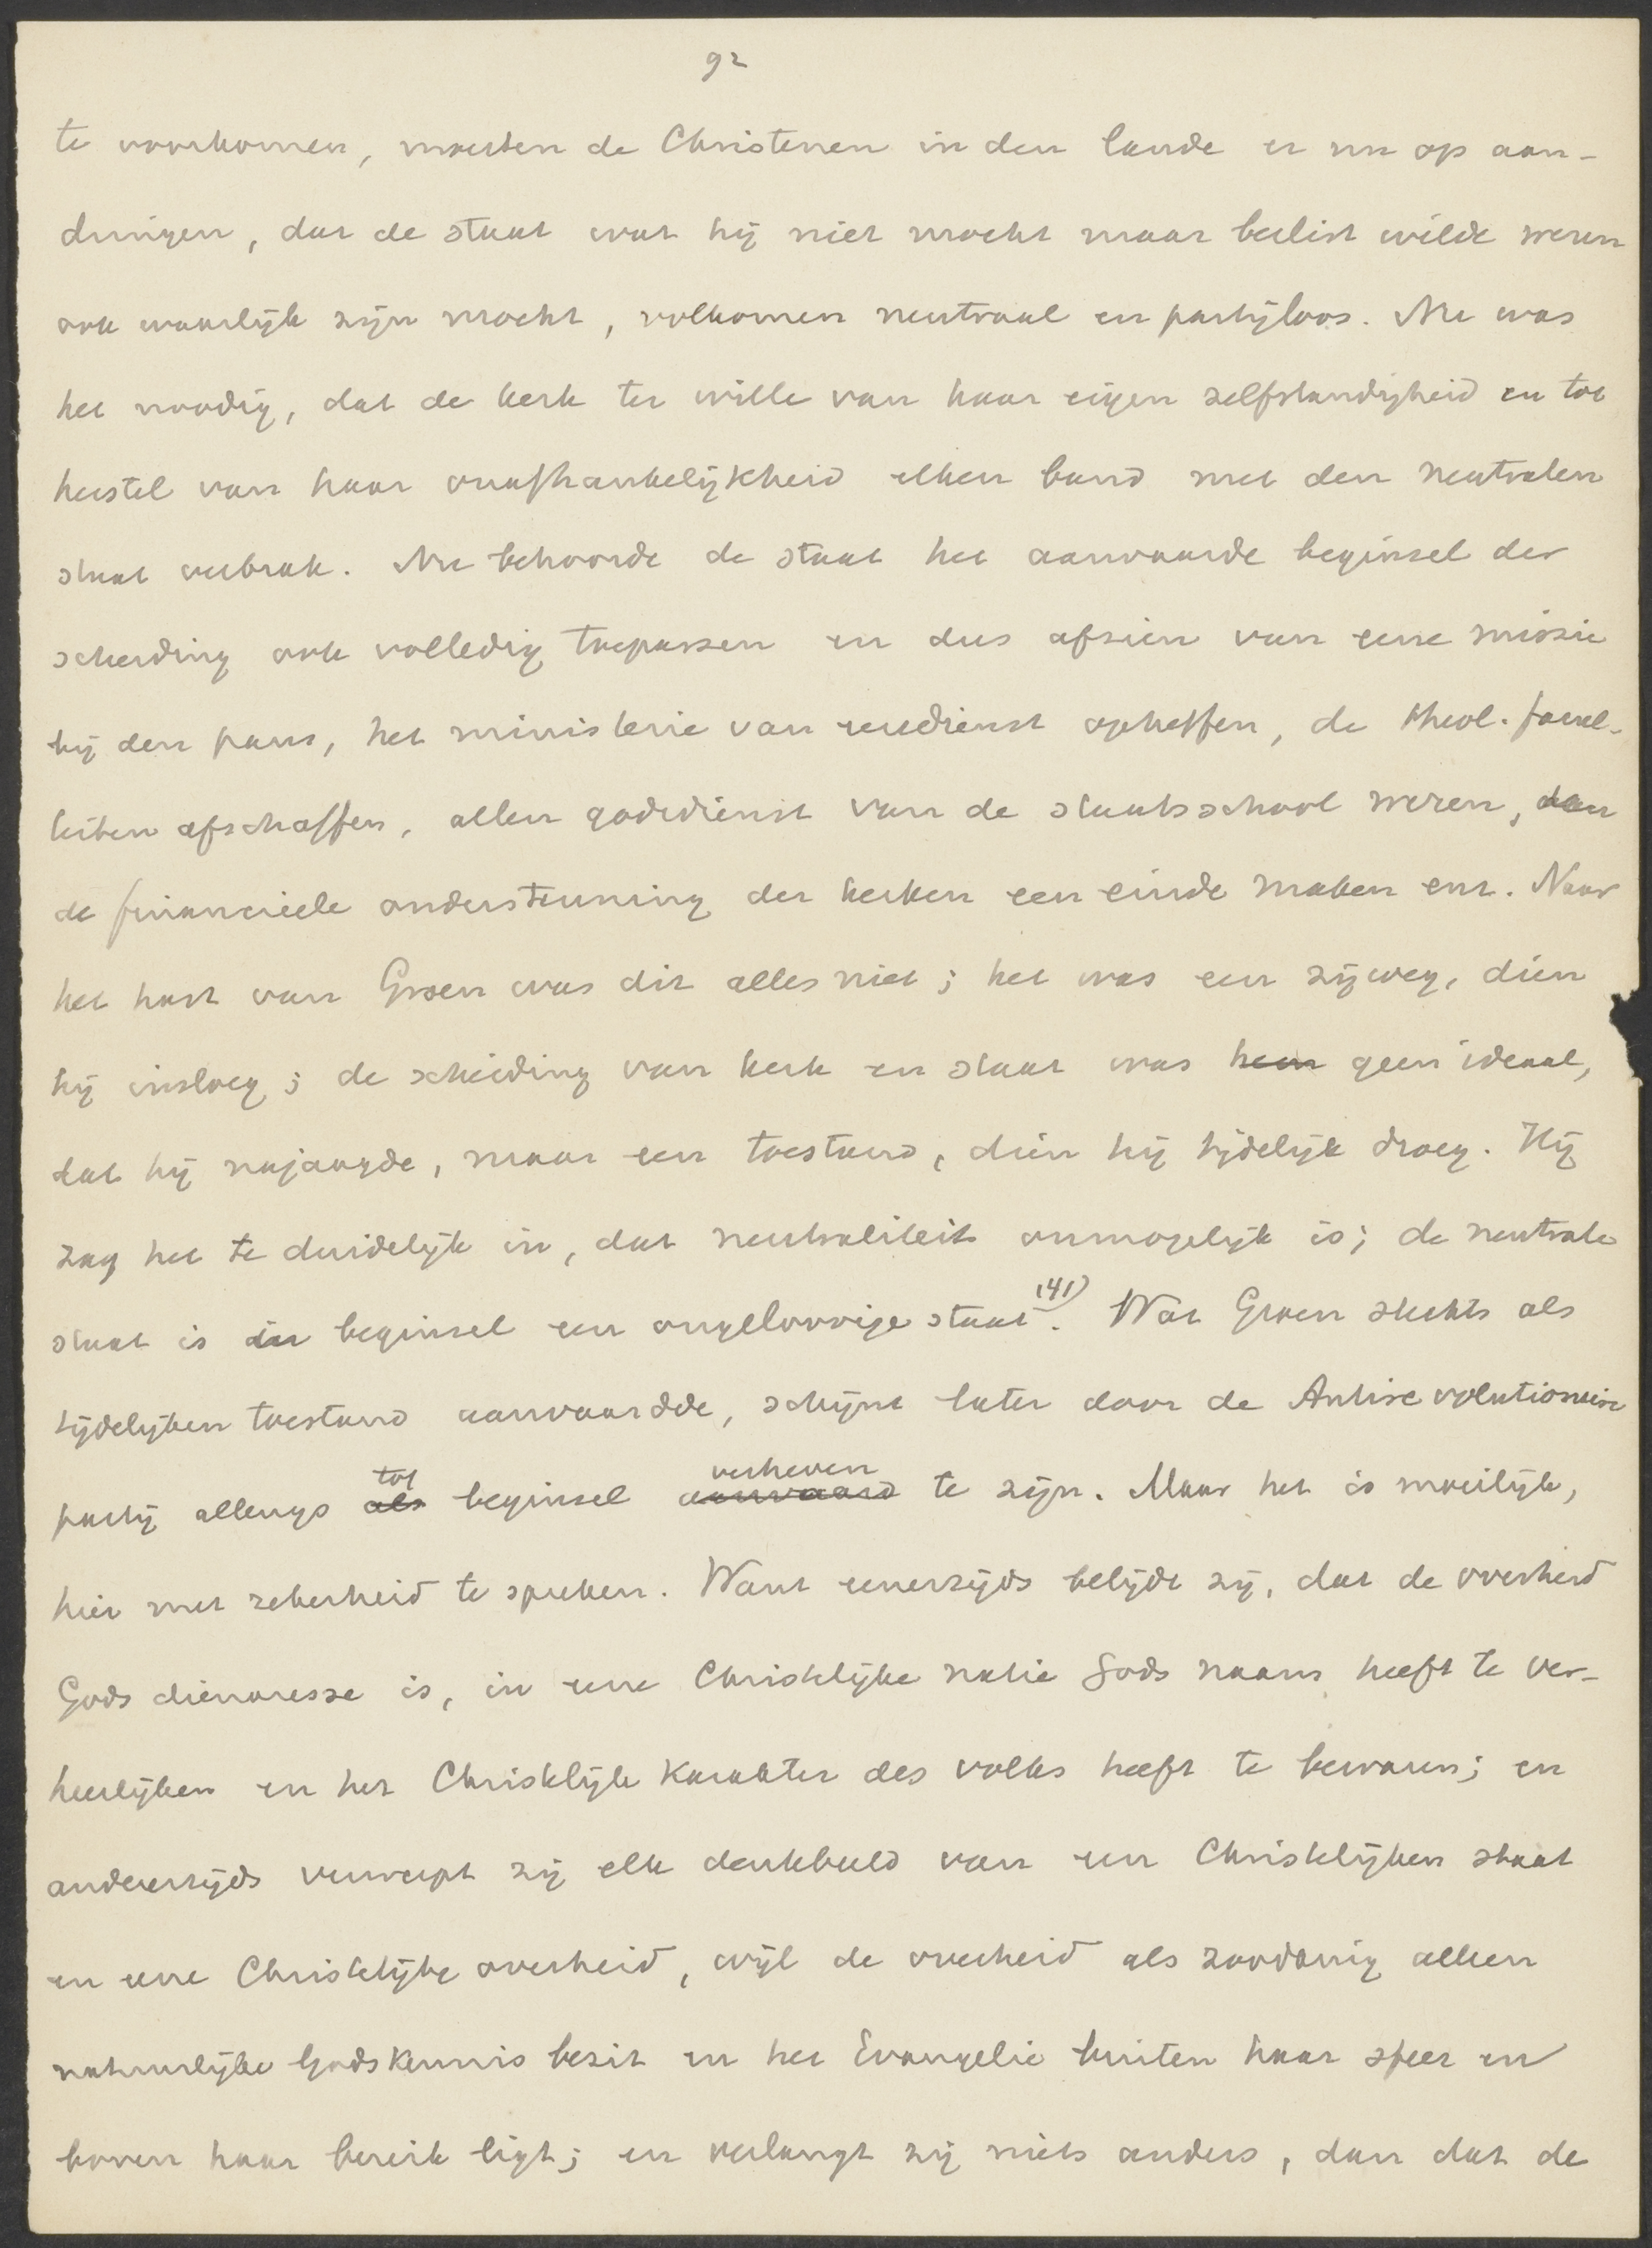 92
te voorkomen, moesten de Christenen in den lande er nu op aan-
dringen, dat de staat wat hij niet mocht maar beslist wilde wezen
ook waarlijk zijn mocht, volkomen neutraal en partijloos. Nu was
het noodig, dat de kerk ter wille van haar eigen zelfstandigheid en tot
herstel van haar onafhankelijkheid elken band met den neutralen
staat verbrak. Nu behoorde de staat het aanvaarde beginsel der
scheiding ook volledig toepassen en dus afzien van eene missie
bij den paus, het ministerie van eeredienst opheffen, de theol. facul-
teiten afschaffen, allen godsdienst van de staatsschool weren, aan
de financieele ondersteuning der kerken een einde maken enz. Naar
het hart van Groen was dit alles niet; het was een zijweg, dien
hij insloeg; de scheiding van kerk en staat was hem geen ideaal,
dat hij najaagde, maar een toestand, dien hij tijdelijk droeg. Hij
zag het te duidelijk in, dat neutraliteit onmogelijk is; de neutrale
staat is in beginsel een ongelovige staat 141). Wat Groen slechts als
tijdelijken toestand aanvaardde, schijnt later door de Antirevolutionaire
partij allengs als tot beginsel aanvaard verheven te zijn. Maar het is moeilijk,
hier met zekerheid te spreken. Want eenerzijds belijdt zij, dat de overheid
Gods dienaresse is, in eene Christelijke natie Gods naam heeft te ver-
heerlijken en het Christelijk karakter des volks heeft te bewaren; en
anderzijds verwerpt zij elk denkbeeld van een Christelijken staat
en eene Christelijke overheid, wijl de overheid als zoodanig alleen
natuurlijke Godskennis bezit en het Evangelie buiten haar sfeer en
boven haar bereik ligt; en verlangt zij niets anders, dan dat de